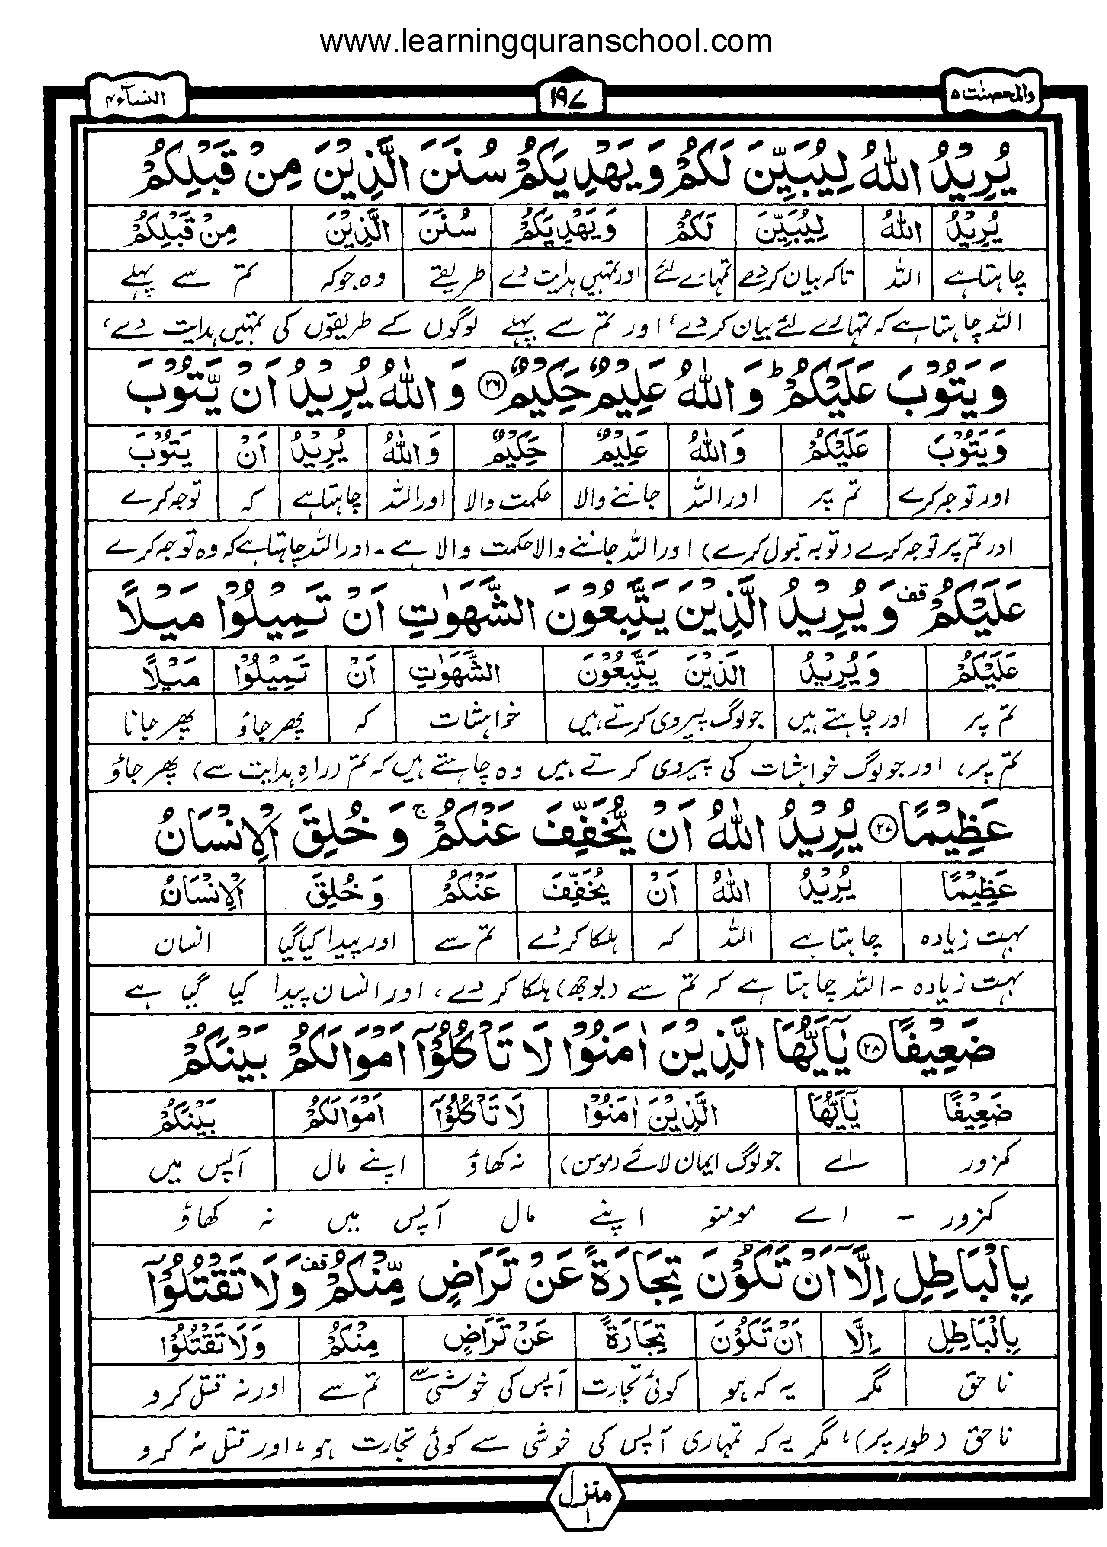 www.learningquranschool.com
والمحصنت ۵ ۱۹۷ النسآء ۴
يُرِيْدُ اللّٰهُ لِيُبَيِّنَ لَكُمْ وَيَهْدِيَكُمْ سُنَنَ الَّذِيْنَ مِنْ قَبْلِكُمْ
يُرِيْدُ اللّٰهُ لِيُبَيِّنَ لَكُمْ وَيَهْدِيَكُمْ سُنَنَ الَّذِيْنَ مِنْ قَبْلِكُمْ
چاہتا ہے اللہ تاکہ بیان کردے تمہارے لئے اور تمہیں ہدایت دے طریقے وہ جو کہ تم سے پہلے
اللہ چاہتا ہے کہ تمہارے لئے بیان کردے، اور تم سے پہلے لوگوں کے طریقوں کی تمہیں ہدایت دے،
وَيَتُوْبَ عَلَيْكُمْ ؕ وَاللّٰهُ عَلِيْمٌ حَكِيْمٌ ﴿۲۶﴾ وَاللّٰهُ يُرِيْدُ اَنْ يَّتُوْبَ
وَيَتُوْبَ عَلَيْكُمْ وَاللّٰهُ عَلِيْمٌ حَكِيْمٌ وَاللّٰهُ يُرِيْدُ اَنْ يَتُوْبَ
اور توجہ کرے تم پر اور اللہ جاننے والا حکمت والا اور اللہ چاہتا ہے کہ توجہ کرے
اور تم پر توجہ کرے (توبہ قبول کرے) اور اللہ جاننے والا حکمت والا ہے۔ اور اللہ چاہتا ہے کہ وہ توجہ کرے
عَلَيْكُمْ قف وَيُرِيْدُ الَّذِيْنَ يَتَّبِعُوْنَ الشَّهَوٰتِ اَنْ تَمِيْلُوْا مَيْلًا
عَلَيْكُمْ وَيُرِيْدُ الَّذِيْنَ يَتَّبِعُوْنَ الشَّهَوٰتِ اَنْ تَمِيْلُوْا مَيْلًا
تم پر اور چاہتے ہیں جو لوگ پیروی کرتے ہیں خواہشات کہ پھر جاؤ پھر جانا
تم پر، اور جو لوگ خواہشات کی پیروی کرتے ہیں وہ چاہتے ہیں کہ تم (راہِ ہدایت سے) پھر جاؤ
عَظِيْمًا ﴿۲۷﴾ يُرِيْدُ اللّٰهُ اَنْ يُّخَفِّفَ عَنْكُمْ ۚ وَخُلِقَ الْاِنْسَانُ
عَظِيْمًا يُرِيْدُ اللّٰهُ اَنْ يُخَفِّفَ عَنْكُمْ وَخُلِقَ الْاِنْسَانُ
بہت زیادہ چاہتا ہے اللہ کہ ہلکا کردے تم سے اور پیدا کیا گیا انسان
بہت زیادہ۔ اللہ چاہتا ہے کہ تم سے (بوجھ) ہلکا کر دے، اور انسان پیدا کیا گیا ہے
ضَعِيْفًا ﴿۲۸﴾ يٰٓاَيُّهَا الَّذِيْنَ اٰمَنُوْا لَا تَاْكُلُوْٓا اَمْوَالَكُمْ بَيْنَكُمْ
ضَعِيْفًا يٰٓاَيُّهَا الَّذِيْنَ اٰمَنُوْا لَا تَاْكُلُوْٓا اَمْوَالَكُمْ بَيْنَكُمْ
کمزور اے جو لوگ ایمان لائے (مومن) نہ کھاؤ اپنے مال آپس میں
کمزور۔ اے مومنو اپنے مال آپس میں نہ کھاؤ
بِالْبَاطِلِ اِلَّآ اَنْ تَكُوْنَ تِجَارَةً عَنْ تَرَاضٍ مِّنْكُمْ قف وَلَا تَقْتُلُوْٓا
بِالْبَاطِلِ اِلَّا اَنْ تَكُوْنَ تِجَارَةً عَنْ تَرَاضٍ مِنْكُمْ وَلَا تَقْتُلُوْٓا
ناحق مگر یہ کہ ہو کوئی تجارت آپس کی خوشی سے تم سے اور نہ قتل کرو
ناحق (طور پر)، مگر یہ کہ تمہاری آپس کی خوشی سے کوئی تجارت ہو، اور قتل نہ کرو
منزل ۱